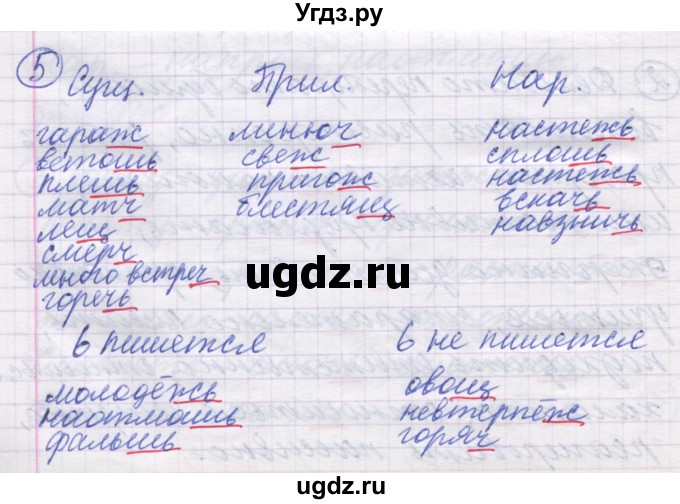 Угдз.ру
5
Сущ. Прил. Нар.
гараж минюч настежь
ветошь свеж сплошь
плешь пригож настежь
матч блестящ вскачь
лещ навзничь
смерч
много встреч
горечь
ugdz.ru
ь пишется ь не пишется
молодёжь овощ
наотмашь невтерпёж
фальшь горяч
ugdz.ru